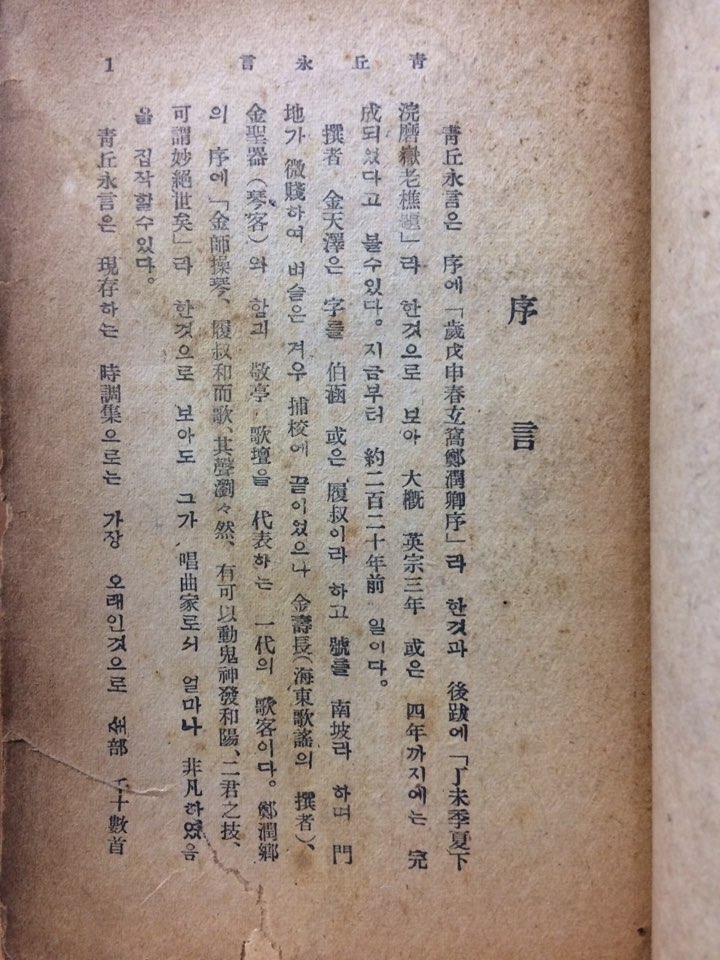 靑丘永言
1
序言
靑丘永言은 序에「歲戊申春立窩鄭潤卿序」라 한것과 後跋에「丁未季夏下
浣磨嶽老樵題」라 한것으로 보아 大概 英宗三年 或은 四年까지에는 完
成되었다고 볼수있다。지금부터 約二百二十年前 일이다。
撰者 金天澤은 字를 伯涵 或은 履叔이라 하고 號를 南坡라 하며 門
地가 微賤하여 벼슬은 겨우 捕校에 끝이었으나 金壽長(海東歌謠의 撰者)、
金聖器(琴客)와 함께 敬亭 歌壇을 代表하는 一代의 歌客이다。鄭潤鄕
의 序에「金師操琴、履叔和而歌、其聲瀏々然、有可以動鬼神發和陽、二君之技、
可謂妙絶世矣」라 한것으로 보아도 그가 唱曲家로서 얼마나 非凡하였음
을 짐작할수있다。
靑丘永言은 現存하는 時調集으로는 가장 오래인것으로 全部 千十數首